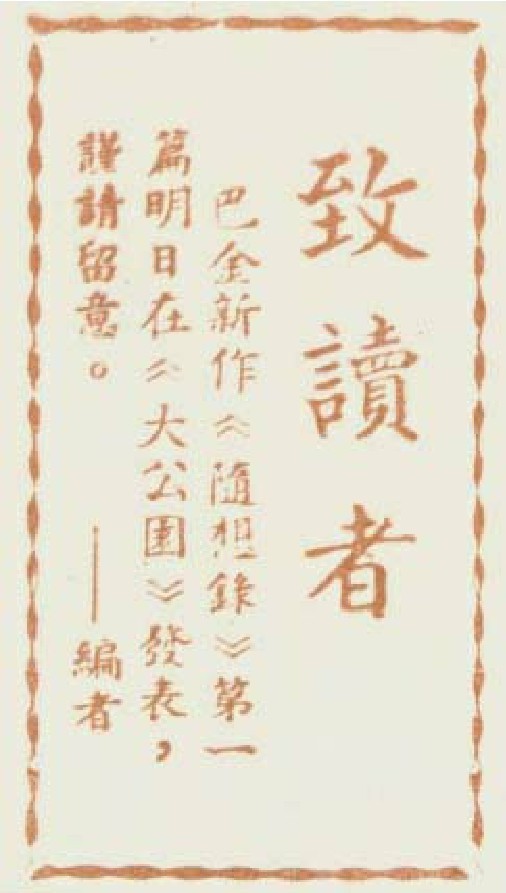 致讀者
巴金新作《隨想錄》第一
篇明日在《大公園》發表，
謹請留意。
——編者